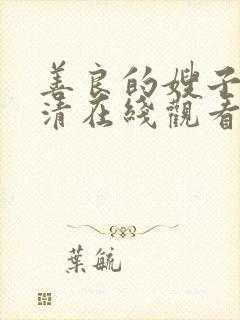 善良的嫂子
清在綫觀看
葉毓